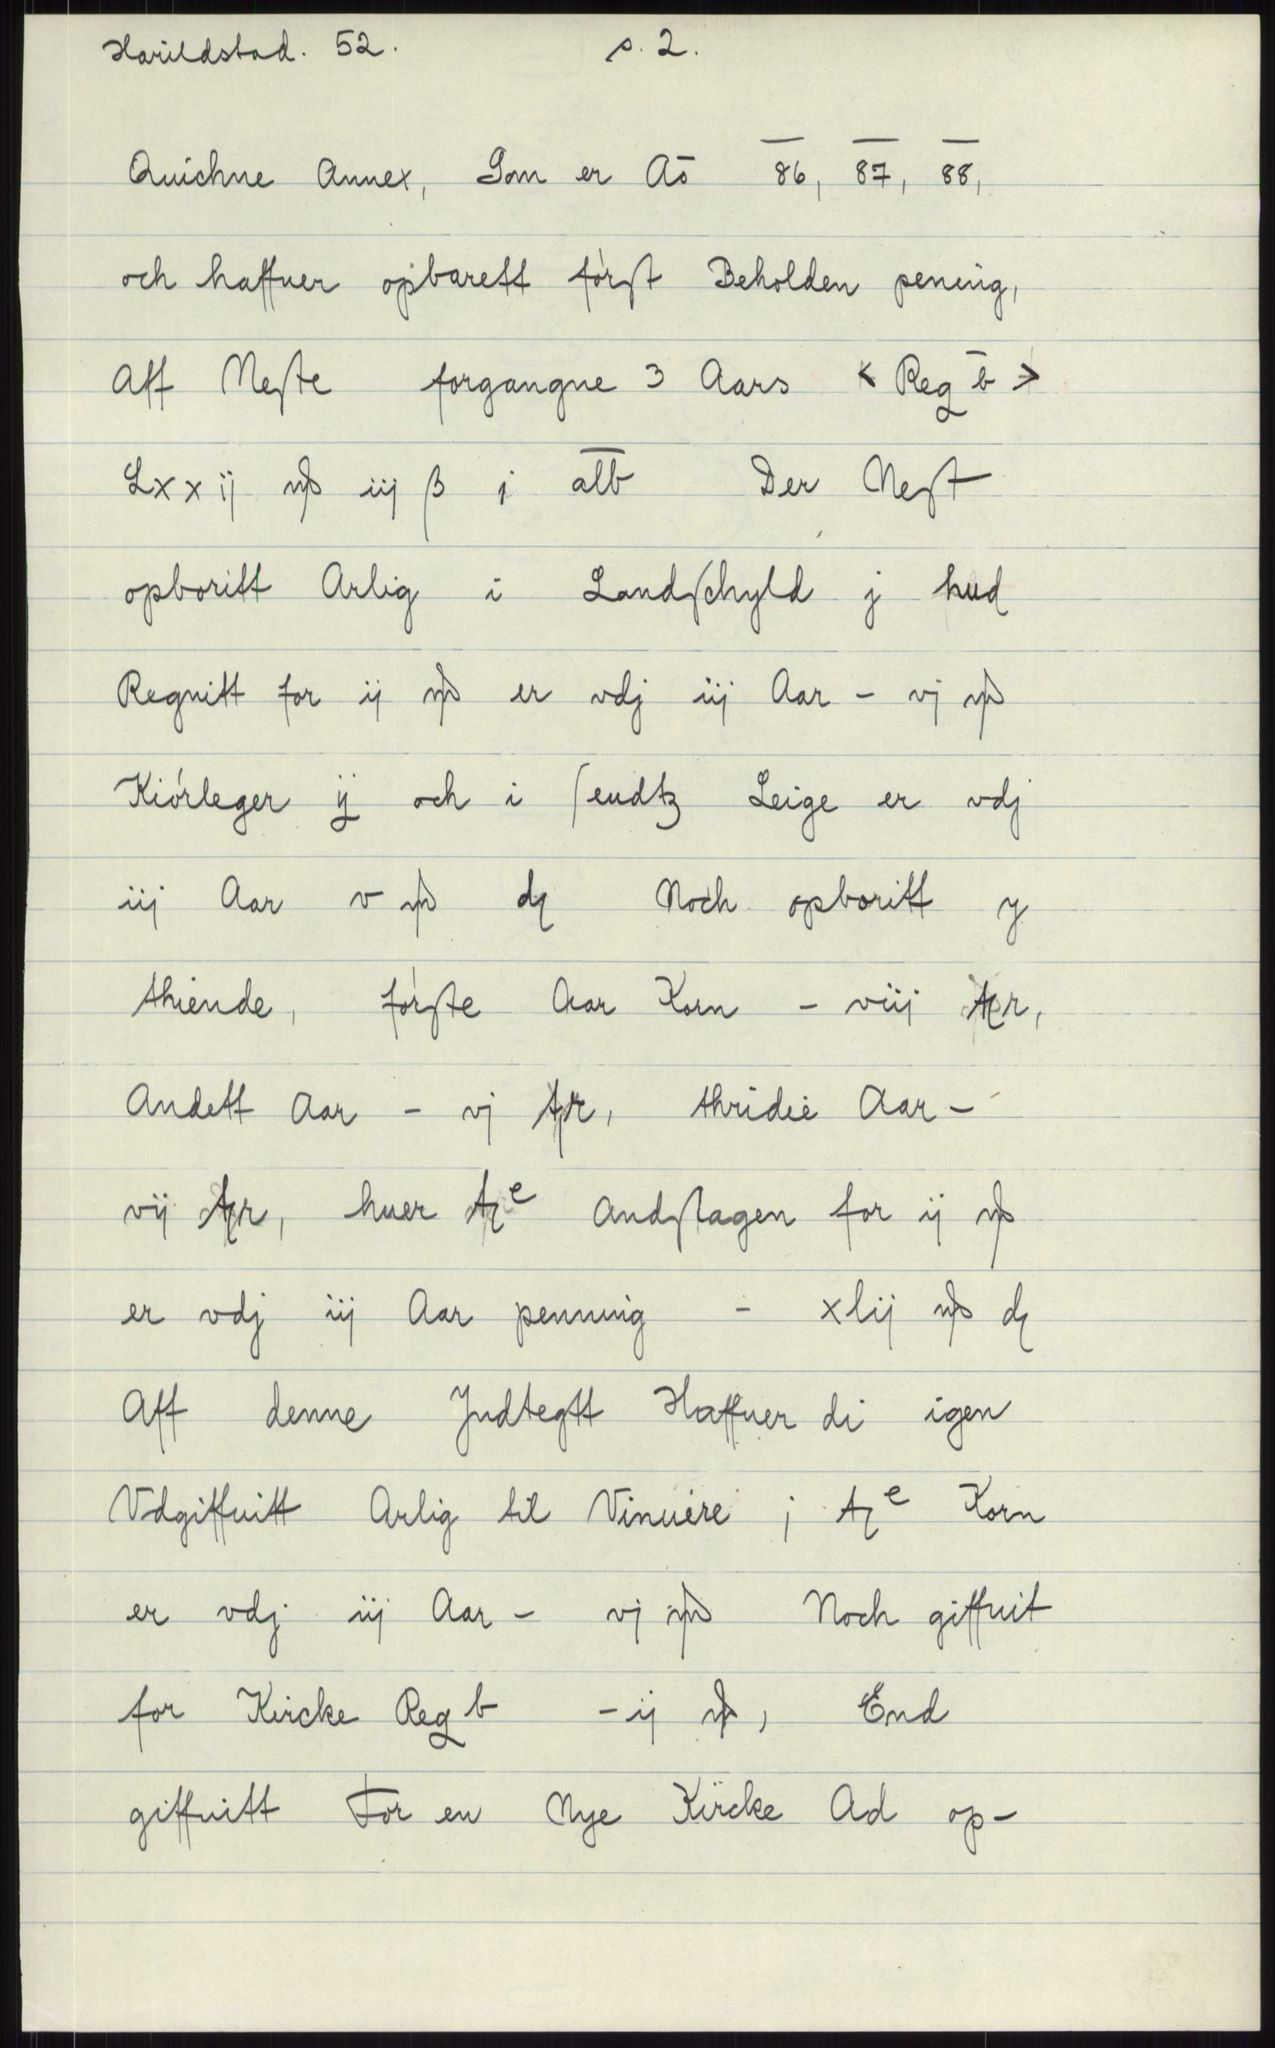 Harildstad. 52. s. 2.
Quichne Annex, Som er Aō 86, 87, 88,
och haffuer opbarett først Beholden pening,
Aff Neste forgangne 3 Aars < Reg b̄ >
Lxxij mȝ iij β j alb Der Nest
opboritt Arlig i Landschyld j hud
Regnitt for ij mȝ er vdj iij Aar - vj mȝ
Kiørleger ij och i sendtz Leige er vdj
iij Aar v mȝ dȝ Noch opboritt y
thiende, første Aar Korn - viij tȝr,
Andett Aar - vj tȝr, thridie Aar -
vij tȝr, huer tȝe andslagen for ij mȝ
er vdj iij Aar penning - xlij mȝ dȝ
Aff denne Jndtegtt Haffuer di igen
Vdgiffuitt Arlig til Vinuere j tȝe Korn
er vdj iij Aar - vj mȝ Noch giffuit
for Kircke Reg b - ij mȝ, End
giffuitt For en Nye Kircke Ad op-